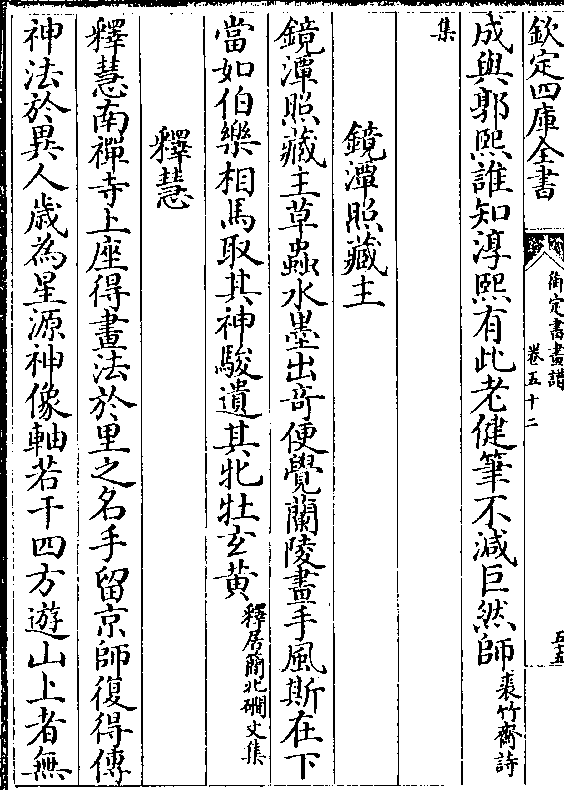 欽定四庫全書
御定書畫譜
卷五十二
五五
成與郭熙誰知淳熙有此老健筆不減巨然師裘竹齋詩
集
鏡潭照藏主
鏡潭照藏主草蟲水墨出竒便覺蘭陵畫手風斯在下
當如伯樂相馬取其神駿遺其牝牡玄黄釋居簡北磵文集
釋慧
釋慧南禪寺上座得畫法於里之名手留京師復得傳
神法於異人歲為星源神像軸若干四方遊山上者無